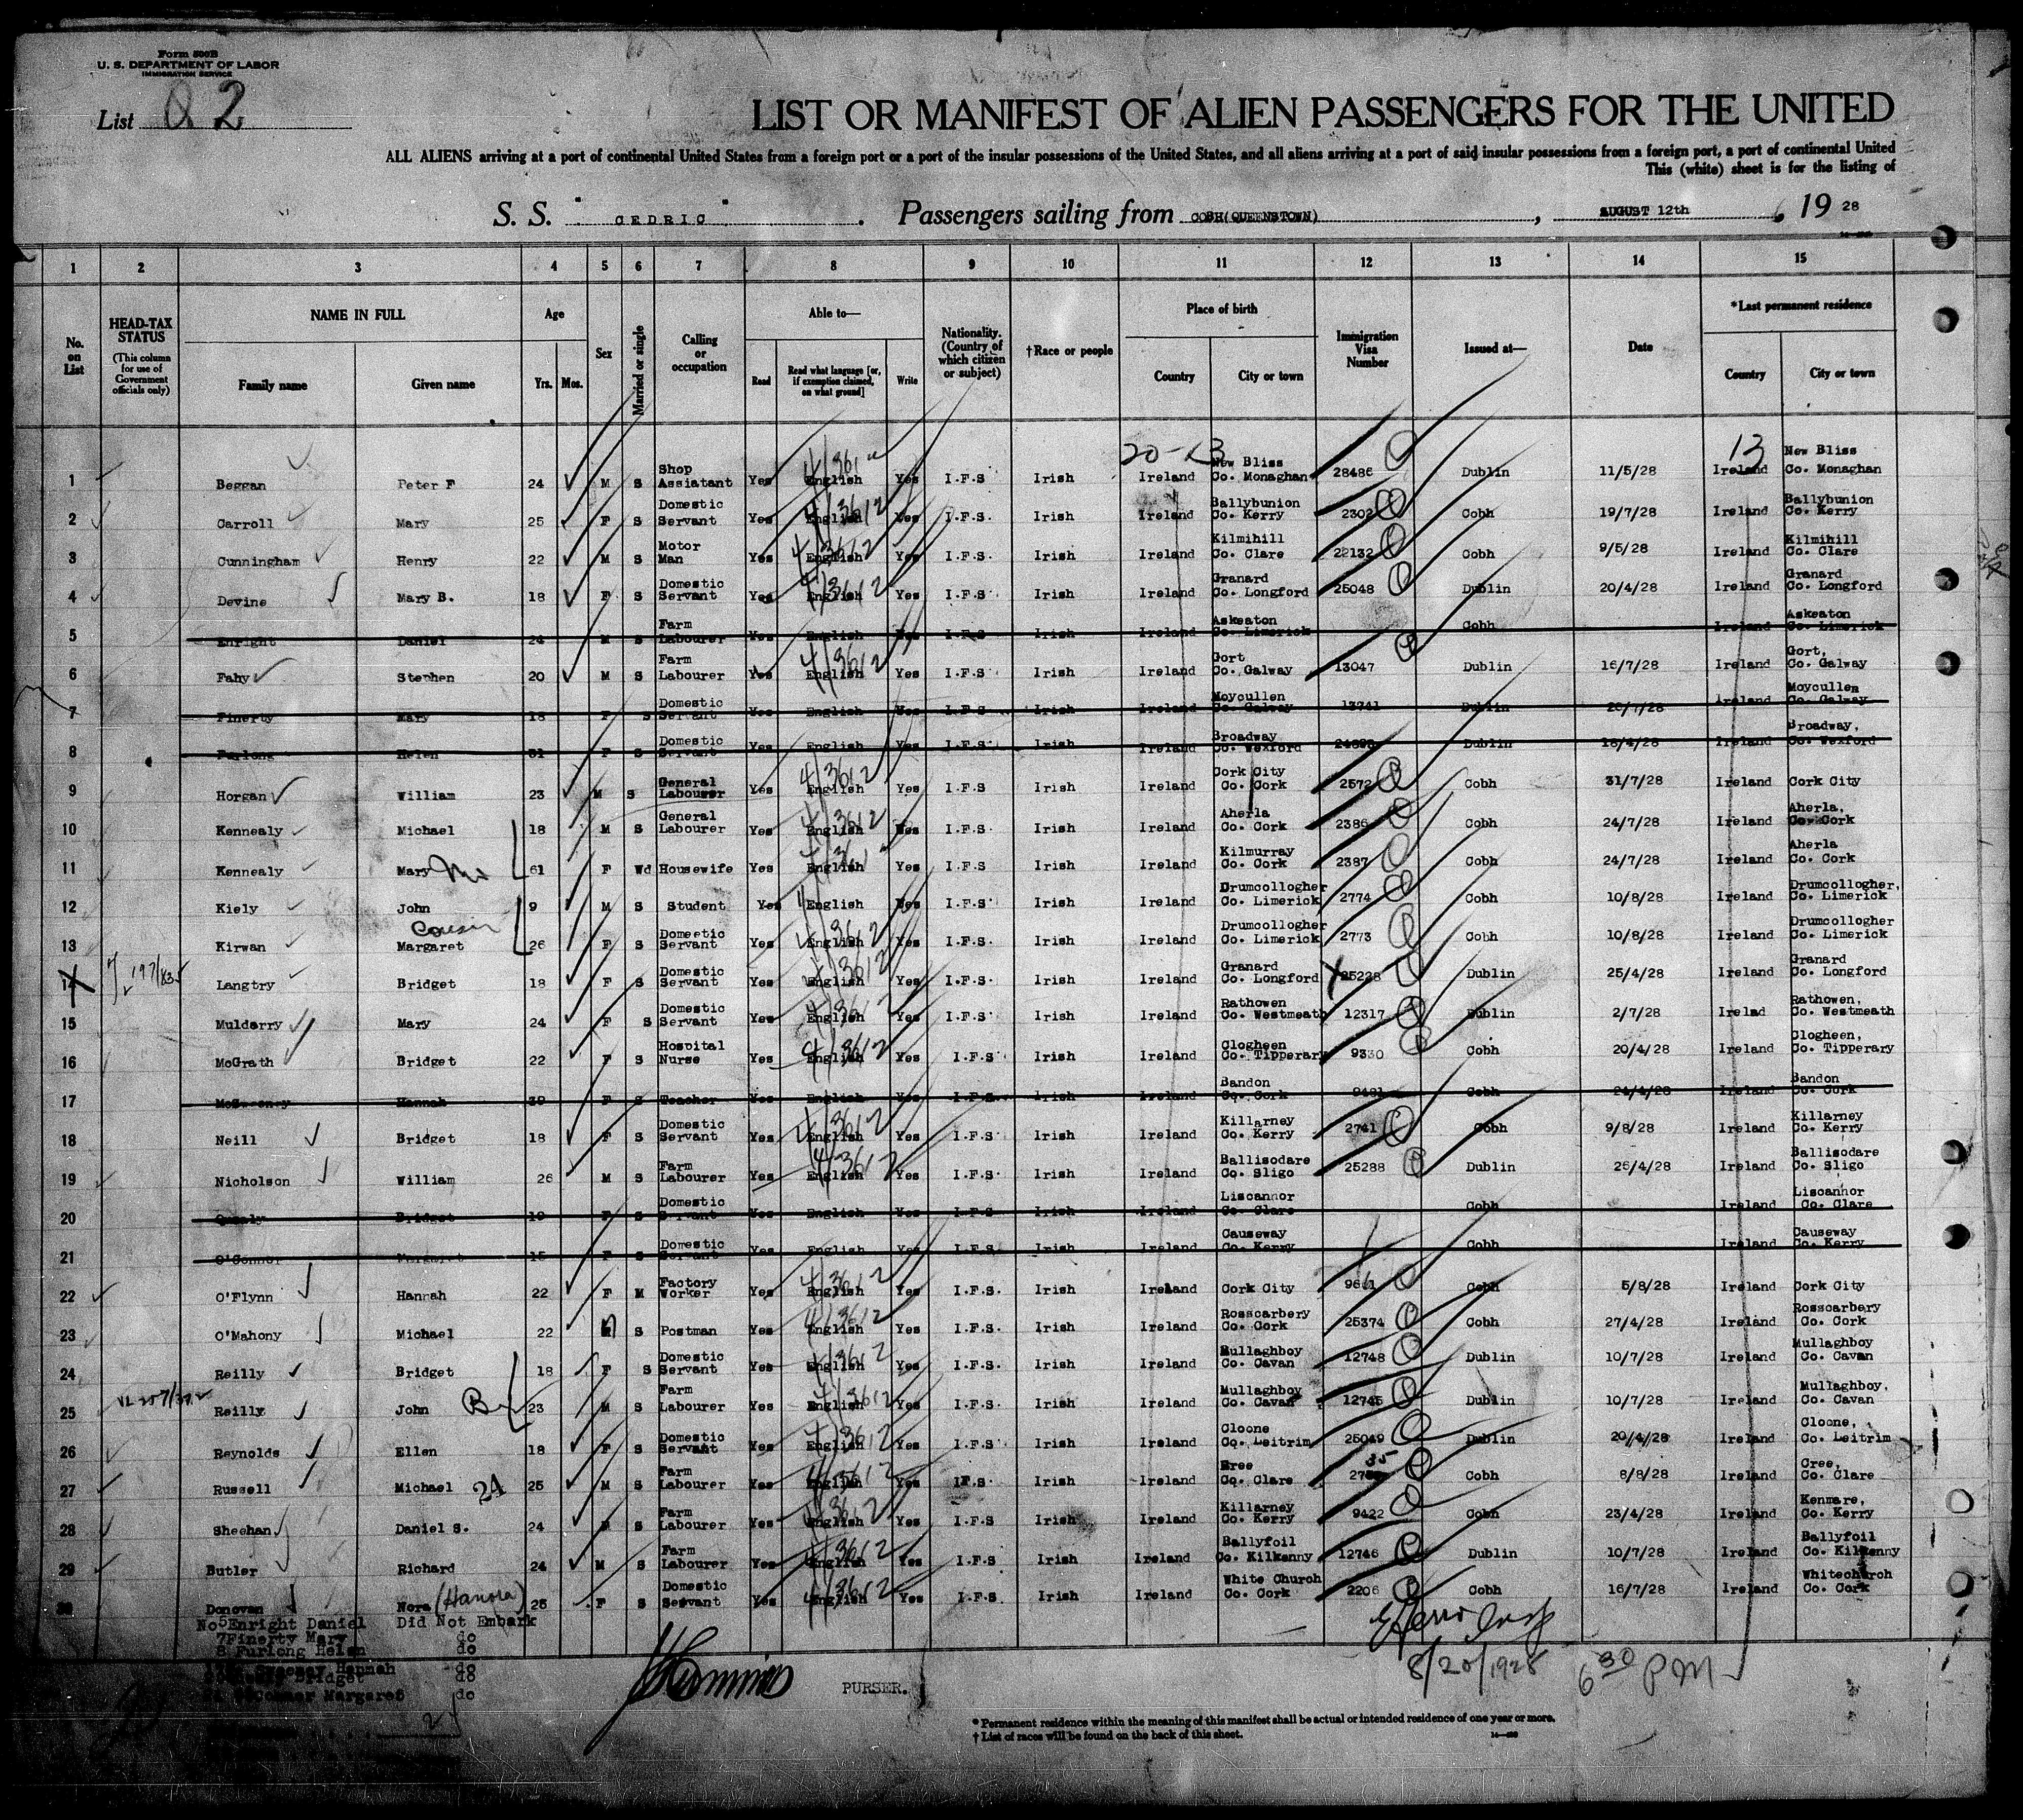 Form 500B
U. S. DEPARTMENT OF LABOR
IMMIGRATION SERVICE
List 2
LIST OR MANIFEST OF ALIEN PASSENGERS FOR THE UNITED
ALL ALIENS arriving at a port of continental United States from a foreign port or a port of the insular possessions of the United States, and all aliens arriving at a port of said insular possessions from a foreign port, a port of continental United
This (white) sheet is for the listing of
S. S. " CEDRIC " . Passengers sailing from COBH(QUEENSTOWN) , AUGUST 12th , 19 28
1 2 3 4 5 6 7 8 9 10 11 12 13 14 15
No. on List
HEAD-TAX STATUS (This column for use of Government officials only)
NAME IN FULL Family name Given name
Age Yrs. Mos.
Sex
Married or single
Calling or occupation
Able to— Read Read what language [or, if exemption claimed, on what ground] Write
Nationality. (Country of which citizen or subject)
†Race or people
Place of birth Country City or town
Immigration Visa Number
Issued at—
Date
*Last permanent residence Country City or town
20-13 13
1 Beggan Peter F 24 M S Shop Assiatant Yes English Yes I.F.S Irish Ireland New Bliss Co. Monaghan 28486 Dublin 11/5/28 Ireland New Bliss Co. Monaghan
2 Carroll Mary 25 F S Domestic Servant Yes English Yes I.F.S. Irish Ireland Ballybunion Co. Kerry 2302 Cobh 19/7/28 Ireland Ballybunion Co. Kerry
3 Cunningham Henry 22 M S Motor Man Yes English Yes I.F.S. Irish Ireland Kilmihill Co. Clare 22132 Cobh 9/5/28 Ireland Kilmihill Co. Clare
4 Devine Mary B. 18 F S Domestic Servant Yes English Yes I.F.S Irish Ireland Granard Co. Longford 25048 Dublin 20/4/28 Ireland Granard Co. Longford
5 Enright Daniel 24 M S Farm Labourer Yes English Yes I.F.S Irish Ireland Askeaton Co. Limerick Cobh Ireland Askeaton Co. Limerick
6 Fahy Stephen 20 M S Farm Labourer Yes English Yes I.F.S Irish Ireland Gort Co. Galway 13047 Dublin 16/7/28 Ireland Gort, Co. Galway
7 Finerty Mary 18 F S Domestic Servant Yes English Yes I.F.S Irish Ireland Moycullen Co. Galway 13741 Dublin Ireland Moycullen Co. Galway
8 Furlong Helen F S Domestic Servant Yes English Yes I.F.S Irish Ireland Broadway Co. Wexford Dublin 18/4/28 Ireland Broadway, Co. Wexford
9 Horgan William 23 M S General Labourer Yes English Yes I.F.S Irish Ireland Cork City Co. Cork 2572 Cobh 31/7/28 Ireland Cork City
10 Kennealy Michael 18 M S General Labourer Yes English Yes I.F.S. Irish Ireland Aherla Co. Cork 2386 Cobh 24/7/28 Ireland Aherla, Co. Cork
11 Kennealy Mary 61 F Wd Housewife Yes English Yes I.F.S Irish Ireland Kilmurray Co. Cork 2387 Cobh 24/7/28 Ireland Aherla Co. Cork
12 Kiely John 9 M S Student Yes English Yes I.F.S Irish Ireland Drumcollogher Co. Limerick 2774 Cobh 10/8/28 Ireland Drumcollogher, Co. Limerick
Cousin
13 Kirwan Margaret 26 F S Domestic Servant Yes English Yes I.F.S. Irish Ireland Drumcollogher Co. Limerick 2773 Cobh 10/8/28 Ireland Drumcollogher Co. Limerick
14 Langtry Bridget 18 F S Domestic Servant Yes English Yes I.F.S. Irish Ireland Granard Co. Longford 25228 Dublin 25/4/28 Ireland Granard Co. Longford
15 Muldarry Mary 24 F S Domestic Servant Yes English Yes I.F.S. Irish Ireland Rathowen Co. Westmeath 12317 Dublin 2/7/28 Irelad Rathowen, Co. Westmeath
16 McGrath Bridget 22 F S Hospital Nurse Yes English Yes I.F.S. Irish Ireland Clogheen Co. Tipperary 9330 Cobh 20/4/28 Ireland Clogheen, Co. Tipperary
17 McSweeney Hannah F S Teacher Yes English Yes I.F.S. Irish Ireland Bandon Co. Cork Cobh 24/4/28 Ireland Bandon Co. Cork
18 Neill Bridget 18 F S Domestic Servant Yes English Yes I.F.S. Irish Ireland Killarney Co. Kerry 2741 Cobh 9/8/28 Ireland Killarney Co. Kerry
19 Nicholson William 26 M S Farm Labourer Yes English Yes I.F.S. Irish Ireland Ballisodare Co. Sligo 25288 Dublin 26/4/28 Ireland Ballisodare Co. Sligo
20 Bridget 19 F S Domestic Servant Yes English Yes I.F.S Irish Ireland Liscannor Co. Clare Cobh Ireland Liscannor Co. Clare
21 O'Connor Margaret F S Domestic Servant Yes English Yes I.F.S Irish Ireland Causeway Co. Kerry Cobh Ireland Causeway Co. Kerry
22 O'Flynn Hannah 22 F M Factory Worker Yes English Yes I.F.S. Irish Ireland Cork City Cobh 5/8/28 Ireland Cork City
23 O'Mahony Michael 22 S Postman Yes English Yes I.F.S. Irish Ireland Rosscarbery Co. Cork 25374 Cobh 27/4/28 Ireland Rosscarbery Co. Cork
24 Reilly Bridget 18 F S Domestic Servant Yes English Yes I.F.S. Irish Ireland Mullaghboy Co. Cavan 12748 Dublin 10/7/28 Ireland Mullaghboy Co. Cavan
25 Reilly John 23 M S Farm Labourer Yes English Yes I.F.S. Irish Ireland Mullaghboy Co. Cavan 12745 Dublin 10/7/28 Ireland Mullaghboy, Co. Cavan
26 Reynolds Ellen 18 F S Domestic Servant Yes English Yes I.F.S Irish Ireland Cloone Co. Leitrim 25049 Dublin 20/4/28 Ireland Cloone, Co. Leitrim
27 Russell Michael 24 25 M S Farm Labourer Yes English Yes I.F.S. Irish Ireland Co. Clare Cobh 8/8/28 Ireland Cree, Co. Clare
28 Sheehan Daniel S. 24 S Farm Labourer Yes English Yes I.F.S Irish Ireland Killarney Co. Kerry 9422 Cobh 23/4/28 Ireland Kenmare, Co. Kerry
29 Butler Richard 24 M S Farm Labourer Yes English Yes I.F.S Irish Ireland Ballyfoil Co. Kilkenny 12746 Dublin 10/7/28 Ireland Ballyfoil Co. Kilkenny
30 Donovan Nora (Hanora) 25 F S Domestic Servant Yes English Yes I.F.S Irish Ireland White Church Co. Cork 2206 Cobh 16/7/28 Ireland Whitechurch Co. Cork
No 5 Enright Daniel Did Not Embark
7 Finerty Mary do
8 Furlong Helen do
Hannah do
Bridget do
Margaret do
24
PURSER.
8/20/1928 6 30 PM
* Permanent residence within the meaning of this manifest shall be actual or intended residence of one year or more.
† List of races will be found on the back of this sheet.